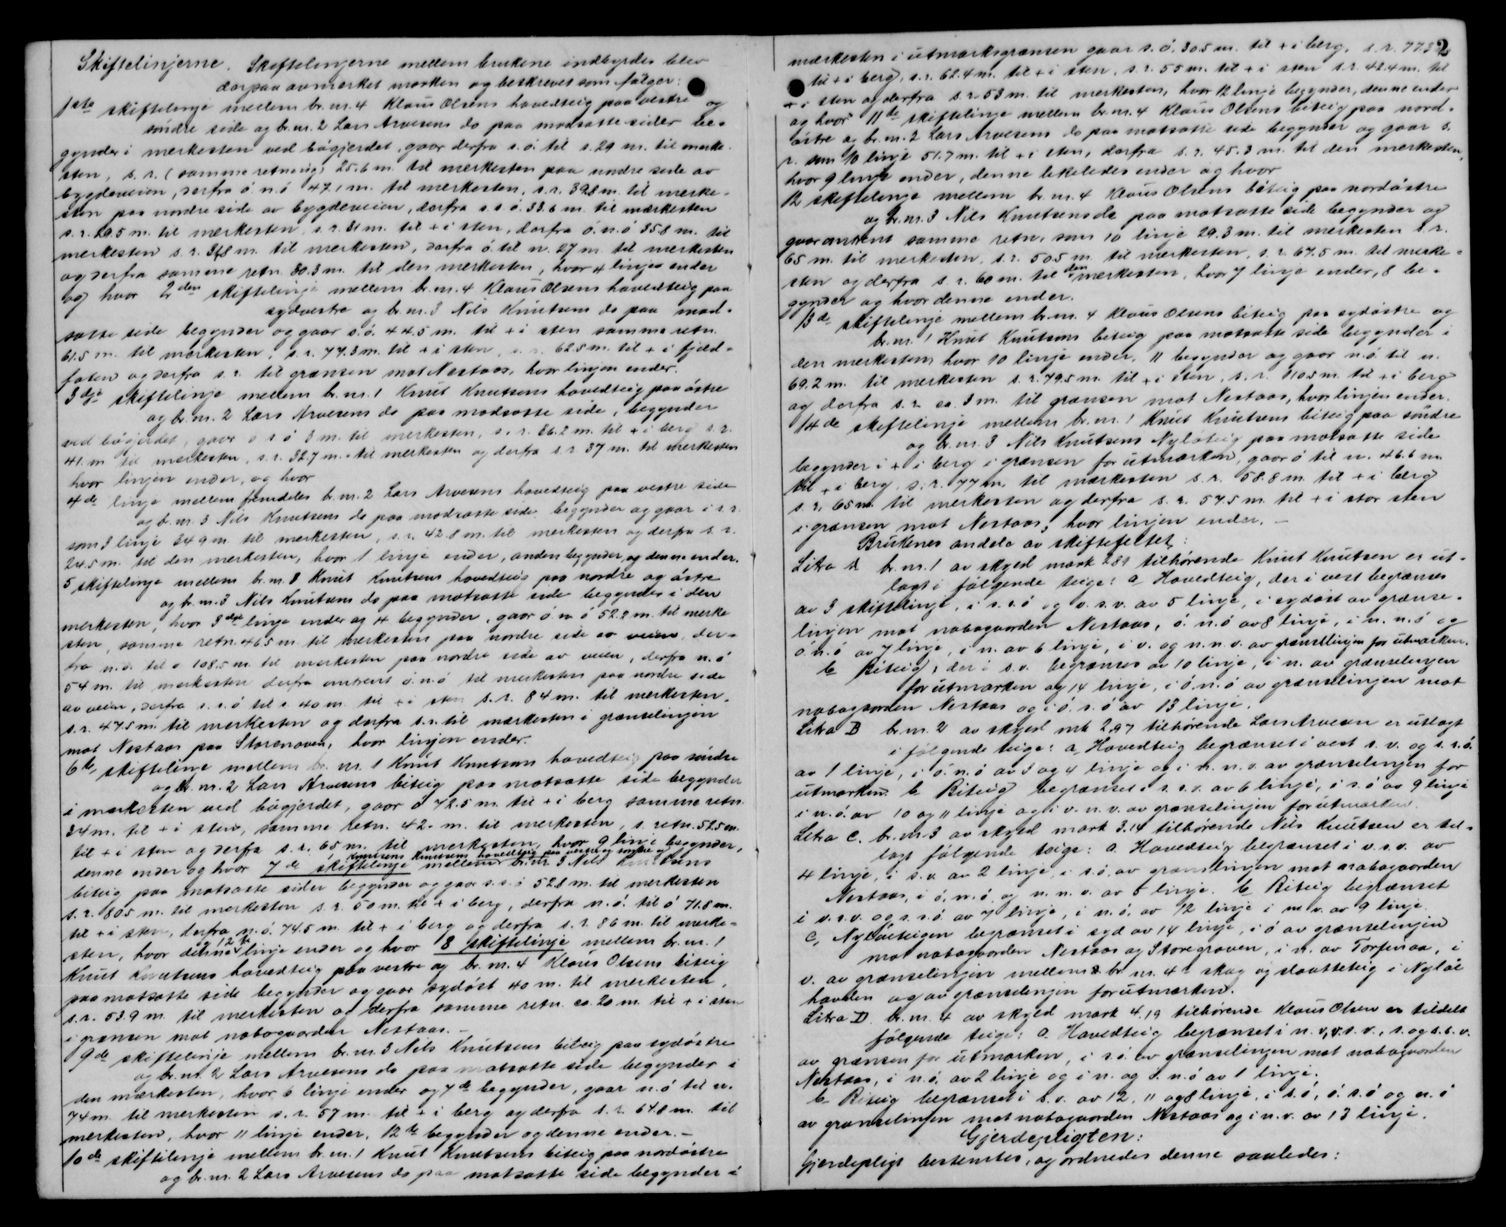 Skiftelinjerne. Skiftelinjerne mellem brukene indbyrdes blev
derpaa avmerket marken og beskrevet som følger:
1ste skiftelinje mellem br. nr. 4 Klaus Olsens hovedteig paa vestre og
søndre side og br. nr. 2 Lars Arvesens do paa modsatte sider be-
gynder i merkesten ved bøgjerdet, gaar derfra s. ø. til s. 29 m. til merke-
sten, s. r. (samme retning) 25.6 m. til merkesten paa søndre side av
bygdeveien, derfra ø. n. ø 47.1 m. til merkesten, s. r. 39.8 m. til merke-
sten paa nordre side av bygdeveien, derfra s. s. ø. 33.6 m. til merkesten
s. r. 20.5 m. til merkesten s. r. 31 m. til + i sten, derfra ø. n. ø 35.8 m. til
merkesten s. r. 36.8 m. til merkesten, derfra ø. til n. 27 m. til merkesten
og derfra samme retn. 30.3 m. til den merkesten, hvor 4 linjer ender
og hvor 2den skiftelinje mellem br. nr. 4 Klaus Olsens hovedteig paa
sydvestre og br. nr. 3 Nils Knutsens do paa mod-
satte side begynder og gaar s. ø. 44.5 m. til + i sten samme retn.
61.5 m. til merkesten, s. r. 77.3 m. til + i sten, s. r. 62.5 m. til + i fjeld-
foten og derfra s. r. til grænsen mot Nestaas, hvor linjen ender.
3dje skiftelinje mellem br. nr. 1 Knut Knutsens hovedteig paa østre
og br. nr. 2 Lars Arvesens do paa modsatte side, begynder
ved bøgjerdet, gaar s. s. ø 3 m. til merkesten, s. r. 36.2 m. til + i berg s. r.
41 m til merkesten, s. r. 32.7 m. til merkesten og derfra s. r 37 m. til merkesten
hvor linjen ender, og hvor
4de linje mellem fremdeles br. nr. 2 Lars Arvesens hovedteig paa vestre side
og br. nr. 3 Nils Knutsens do paa modsatte side begynder og gaar i s. r.
som 3 linje 34.9 m til merkesten, s. r. 42.8 m. til merkesten og derfra s. r.
24.5 m. til den merkesten, hvor 1 linje ender, anden begynder og denne ender.
5 skiftelinje mellem br. nr. 1 Knut Knutsens hovedteig paa nordre og østre
og br. nr. 3 Nils Knutsens do paa motsatte side begynder i den
merkesten, hvor 3dje linje ender og 4 begynder, gaar ø n ø 52.2 m. til merke
sten, samme retn. 46.5 m. til merkesten paa nordre side av veien, der-
fra n. ø. til ø 108.5 m. til merkesten paa nordre side av veien, derfra n. ø
54 m. til merkesten derfra omtrent ø. n. ø til merkesten paa nordre side
av veien, derfra s. s. ø til s 40 m. til + i sten s. r. 84 m. til merkesten,
s. r. 47.5 m. til merkesten og derfra s. r. til merkesten i grænselinjen
mot Nestaas paa Storenoven, hvor linjen ender.
6te skiftelinje mellem br. nr. 1 Knut Knutsens hovedteig paa søndre
og br. nr. 2 Lars Arvesens biteig paa motsatte side begynder
i merkesten ved bøgjerdet, gaar ø 72.5 m. til + i berg samme retn.
34 m. til + i sten, samme retn. 42. m. til merkesten, s. retn. 52.5 m.
til + i sten og derfra s. r. 65 m. til merkesten, hvor 9 linje begynder,
denne ender og hvor 7de skiftelinje mellem br. nr. 3 Nils Knutsens
biteig paa motsatte sider begynder og gaar s. s. ø 52.8 m. til merkesten
s. r. 80.5 m. til merkesten s. r. 50 m. til + i berg, derfra n. ø. til ø 71.8 m.
til + i sten, derfra n. ø. 74.5 m. til + i berg og derfra s. r. 86 m. til merke-
sten, hvor denne linje ender og hvor 8 skiftelinje mellem br. nr. 1
Knut Knutsens hovedteig paa vestre og br. nr. 4 Klaus Olsens biteig
paa motsatte side begynder og gaar sydøst 40 m. til merkesten,
s. r. 53.9 m. til merkesten og derfra samme retn. ca. 20 m. til + i sten
i grænsen mot nabogaarden Nestaas. –
9de skiftelinje mellem br. nr. 3 Nils Knutsens biteig paa sydøstre
og br. nr. 2 Lars Arvesens do paa motsatte side begynder i
den merkesten, hvor 6 linje ender og 7de begynder, gaar n. ø til n.
74 m. til merkesten s. r. 57 m. til + i berg og derfra s. r. 64.8 m. til
merkesten, hvor 11 linje ender, 12te begynder og denne ender. –
10de skiftelinje mellem br. nr. 1 Knut Knutsens biteig paa nordøstre
og br. nr. 2 Lars Arvesens do paa motsatte side begynder i
2
merkesten i utmarksgrænsen gaar s. ø. 30.5 m. til + i berg, s. r. 77.3
til + i berg, s. r. 62.4 m. til + i sten, s. r. 55 m. til + i sten s. r. 42.4 m. til
+ i sten og derfra s. r. 53 m. til merkesten, hvor 12 linje begynder, denne ender
og hvor 11te skiftelinje mellem br. nr. 4 Klaus Olsens biteig paa nord-
østre og br. nr. 2 Lars Arvesens do paa motsatte side begynder og gaar s.
r. som 10 linje 51.7 m. til + i sten, derfra s. r. 45.3 m. til den merkesten,
hvor 9 linje ender, denne likeledes ender og hvor
12 skiftelinje mellem br. nr. 4 Klaus Olsens biteig paa nordøstre
og br. nr. 3 Nils Knutsens do paa motsatte side begynder og
gaar omtrent samme retn. som 10 linje 29.3 m. til merkesten s. r.
65 m. til merkesten, s. r. 50.5 m. til merkesten, s. r. 67.5 m. til merke-
sten og derfra s. r. 60 m. til den merkesten, hvor 7 linje ender, 8 be-
gynder og hvor denne ender.
13de skiftelinje mellem br. nr. 4 Klaus Olsens biteig paa sydøstre og
br. nr. 1 Knut Knutsens biteig paa motsatte side begynder i
den merkesten hvor 10 linje ender, 11 begynder og gaar n. ø til n.
69.2 m. til merkesten s. r. 79.5 m. til + i sten, s. r. 110.5 m. til + i berg
og derfra s. r. ca. 3 m. til grænsen mot Nestaas, hvor linjen ender.
14de skiftelinje mellem br. nr. 1 Knut Knutsens biteig paa søndre
og br. nr. 3 Nils Knutsens Nyløteig paa motsatte side
begynder i + i berg i grænsen for utmarken, gaar ø til n. 46.6 m
til + i berg, s. r. 77 m. til merkesten s. r. 58.8 m. til + i berg
s. r. 65 m til merkesten og derfra s. r. 57.5 m. til + i stor sten
i grænsen mot Nestaas, hvor linjen ender. –
Brukenes andele av skiftefeltet:
Litra A br. nr. 1 av skyld mark 2.81 tilhørende Knut Knutsen er ut-
lagt i følgende teige: a Hovedteig, der i vest begrænses
av 3 skiftelinje, i s. s. ø og v. s. v. av 5 linje, i sydøst av grænse-
linjen mot nabogaarden Nestaas, ø. n. ø av 8 linje, i n. n. ø og
ø. n. ø av 7 linje, i n. av 6 linje, i v. og n. n. v. av grænselinjen for utmarken.
b Biteig, der i s. v. begrænses av 10 linje, i n. av grænselinjen
for utmarken og 14 linje, i ø. n. ø av grænselinjen mot
nabogaarden Nestaas og i ø. s. ø av 13 linje.
Litra B br. nr. 2 av skyld mrk 2,97 tilhørende Lars Arvesen er utlagt
i følgende teige: a, Hovedteig begrænset i vest s. v. og s. s. ø.
av 1 linje, i ø. n. ø av 3 og 4 linje og i n. n. v. av grænselinjen for
utmarken. b Biteig begrænset i s. s. v. av 6 linje, i s. ø av 9 linje
i n. ø. av 10 og 11 linje og i v. n. v. av grænselinjen for utmarken.
Litra C. br. nr. 3 av skyld mark 3.14 tilhørende Nils Knutsen er til-
lagt følgende teige: a. Hovedteig begrænset i v. s. v. av
4 linje, i s. v. av 2 linje, i s. ø. av grænselinjen mot nabogaarden
Nestaas, i ø. n. ø. og n. n. v. av 5 linje. b Biteig begrænset
i v. s. v. og s. s. ø av 7 linje, i n. ø. av 12 linje i n. v. av 9 linje.
c, Nyløteigen begrænset i syd av 14 linje, i ø av grænselinjen
mot nabogaarden Nestaas og Storegroven, i n. av Torfinaa, i
v. av grænselinjen mellem br. nr. 4s skog og slaatteteig i Nyløe
havnen og av grænselinjen for utmarken.
Litra D br. nr. 4 av skyld mark 4,19 tilhørende Klaus Olsen er tildelt
følgende teige: a Hovedteig begrænset i n. v, v. s. v., s. og s. s. v.
av grænsen for utmarken, i s. ø av grænselinjen mot nabogaarden
Nestaas, i n. ø. av 2 linje og i n. og ø. n. ø av 1 linje.
b Biteig begrænset i s. v. av 12, 11 og 8 linje, i s. ø, ø. s. ø og n. ø
av grænselinjen mot nabogaarden Nestaas og i n. v. av 13 linje.
Gjerdepligten:
Gjerdepligt bestemtes, og ordnedes denne saaledes: